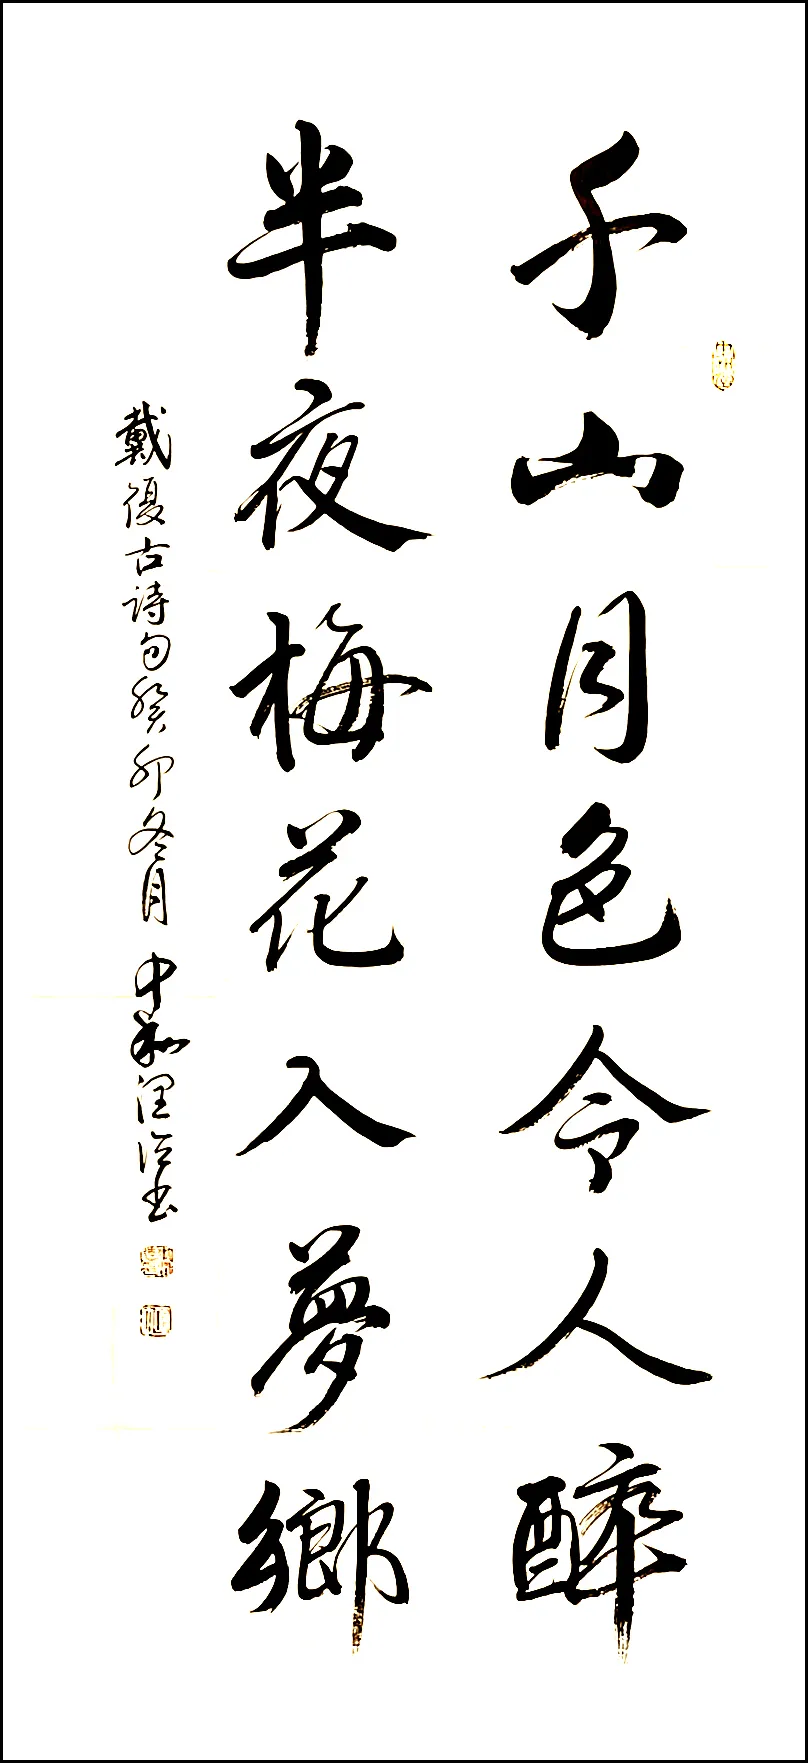 千山月色令人醉
半夜梅花入夢鄉
戴復古詩句癸卯冬月中和里法書